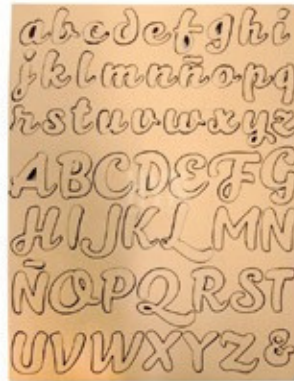 abcdefghi
jklmnñopq
rstuvwxyz
ABCDEFG
HIJKLMN
ÑOPQRST
UVWXYZ&